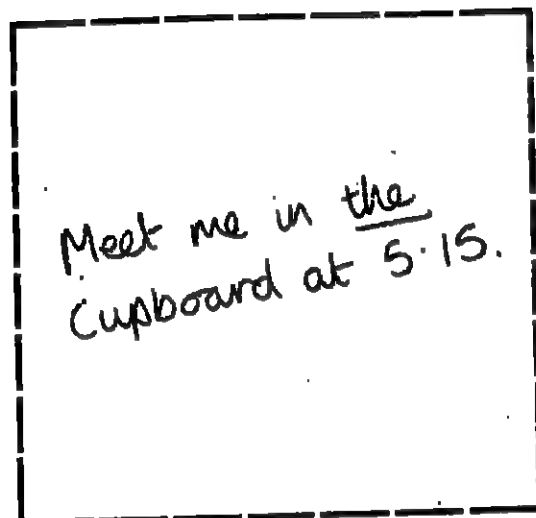 Meet me in the
Cupboard at 5·15.